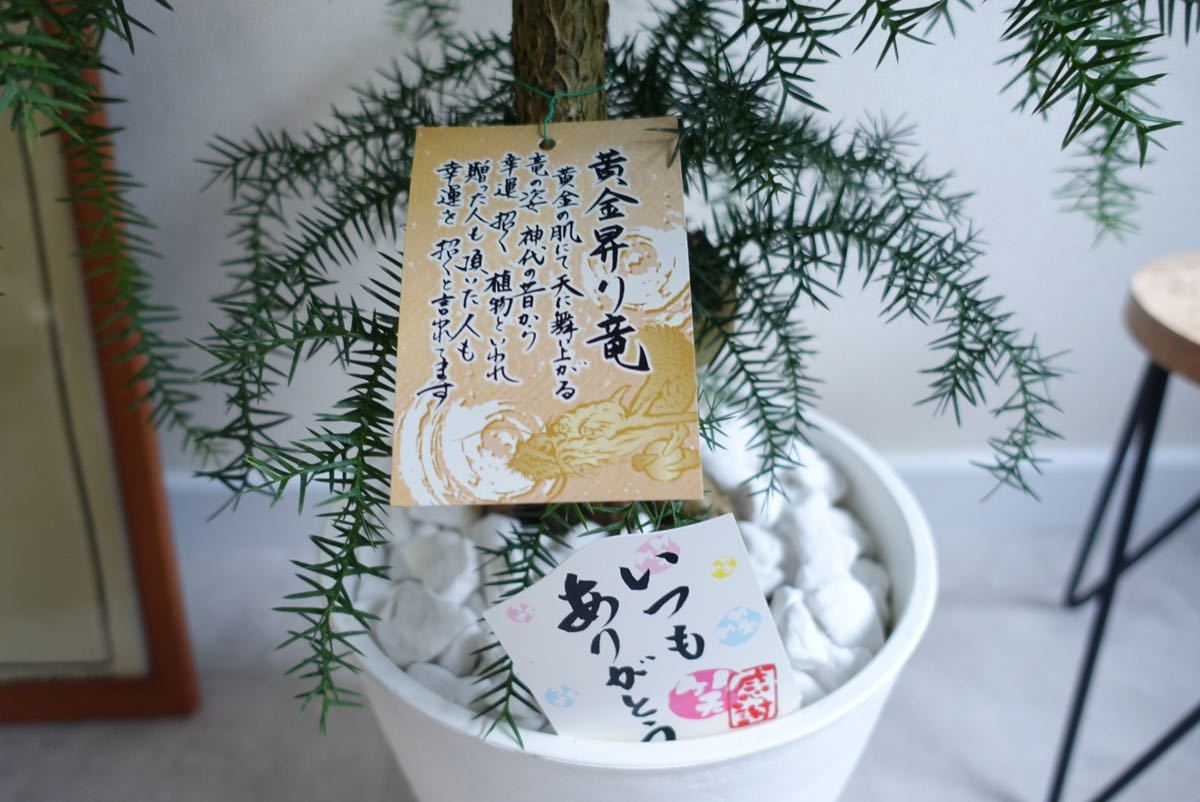 黄金昇り竜
黄金の肌にて天に舞い上がる
竜の姿 神代の昔から
幸運 招く 植物といわれ
贈った人も 頂いた人も
幸運を 招くと言われてます
いつも
ありがとう
感謝